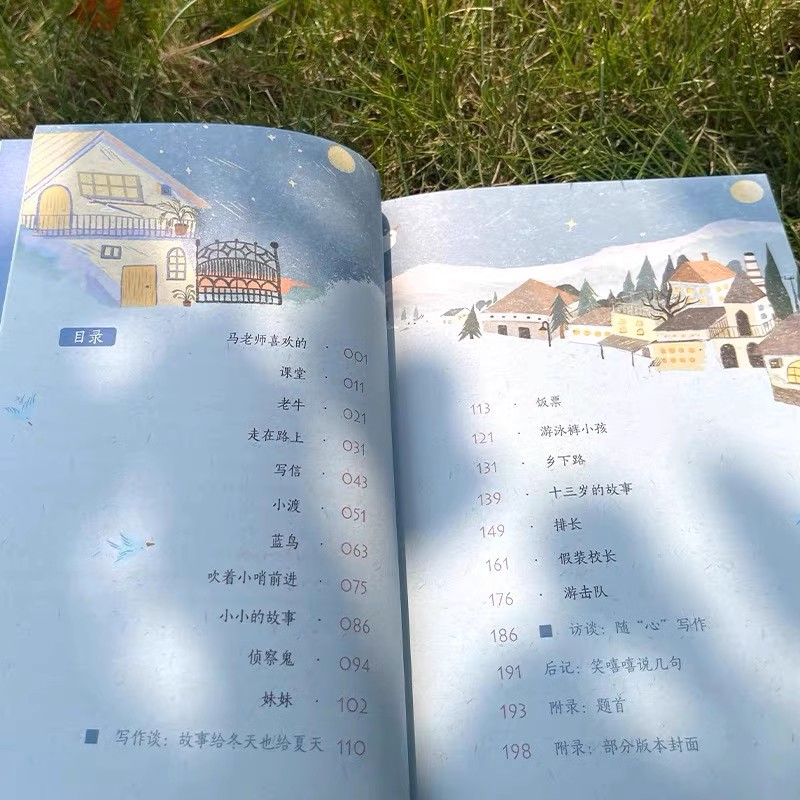 目录
马老师喜欢的 · 001
课堂 · 011
老牛 · 021
走在路上 · 031
写信 · 043
小渡 · 051
蓝鸟 · 063
吹着小哨前进 · 075
小小的故事 · 086
侦察鬼 · 094
妹妹 · 102
写作谈：故事给冬天也给夏天 110
113 · 饭票
121 · 游泳裤小孩
131 · 乡下路
139 · 十三岁的故事
149 · 排长
161 · 假装校长
176 · 游击队
186 访谈：随“心”写作
191 后记：笑嘻嘻说几句
193 附录：题首
198 附录：部分版本封面